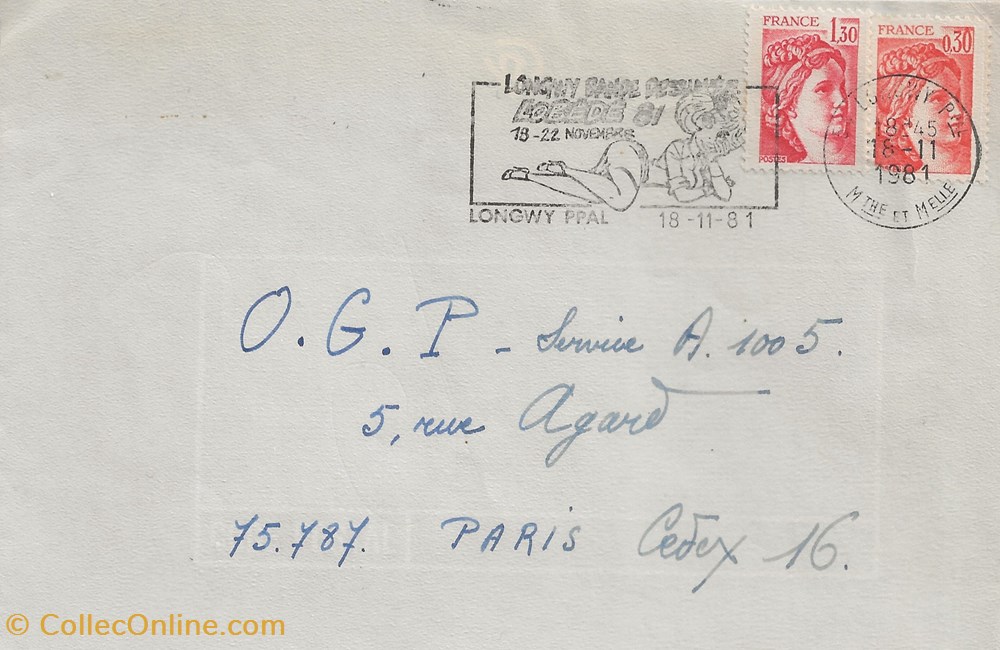 FRANCE 1,30
POSTES
FRANCE 0,30
LONGWY BANDE DESSINÉE
81
18-22 NOVEMBRE
LONGWY PPAL 18-11-81
LONGWY PPAL
18-45
18-11
1981
MTHE ET MELLE
O.G.P - Service A.1005.
5, rue Agard
75.787. PARIS Cedex 16.
© CollecOnline.com